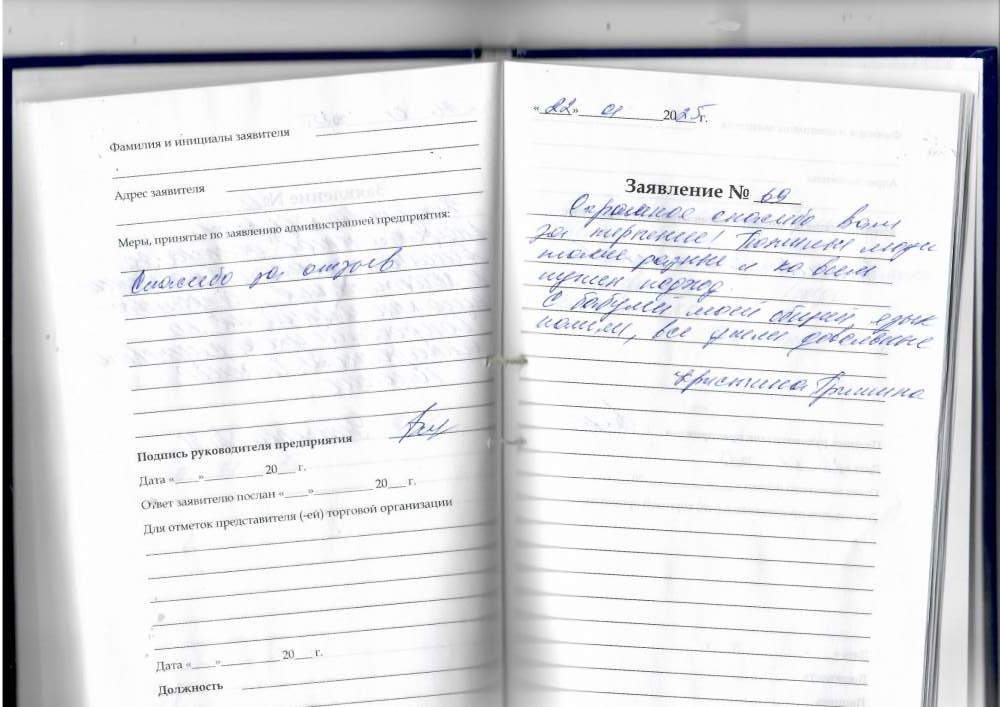 Фамилия и инициалы заявителя
Адрес заявителя
Меры, принятые по заявлению администрацией предприятия:
Спасибо за отзыв
Подпись руководителя предприятия
Дата «___»__________ 20___ г.
Ответ заявителю послан «____»__________ 20___ г.
Для отметок представителя (-ей) торговой организации
Дата «____»__________ 20___ г.
Должность
«22» 01 2025г.
Заявление № 69
Огромное спасибо вам
за терпение! Понимаю люди
разные и ко всем
нужен подход.
С бабулей моей общий язык
нашли, все ушли довольные
Кристина Гришина